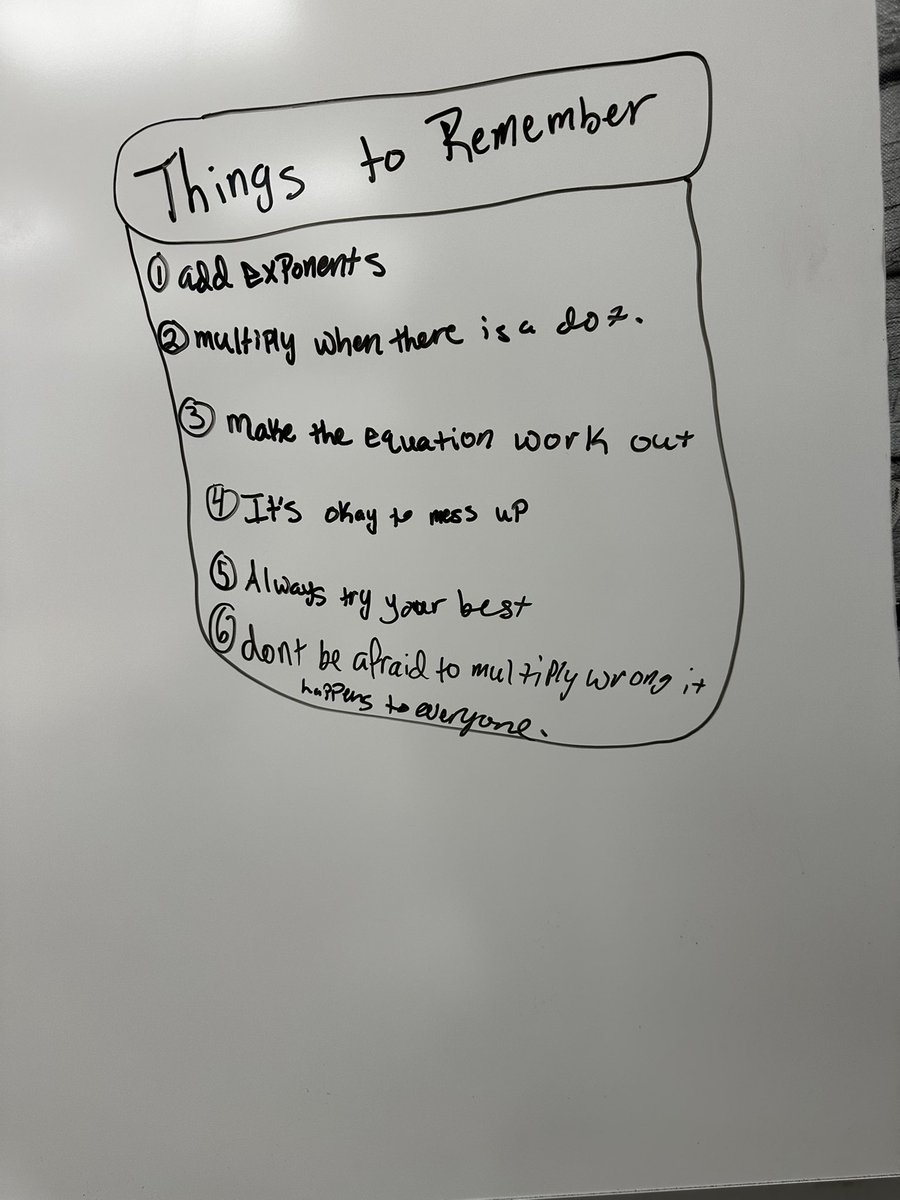 Things to Remember
① add Exponents
② multiply when there is a dot.
③ Make the Equation work out
④ It's okay to mess up
⑤ Always try your best
⑥ dont be afraid to multiply wrong it
happens to everyone.